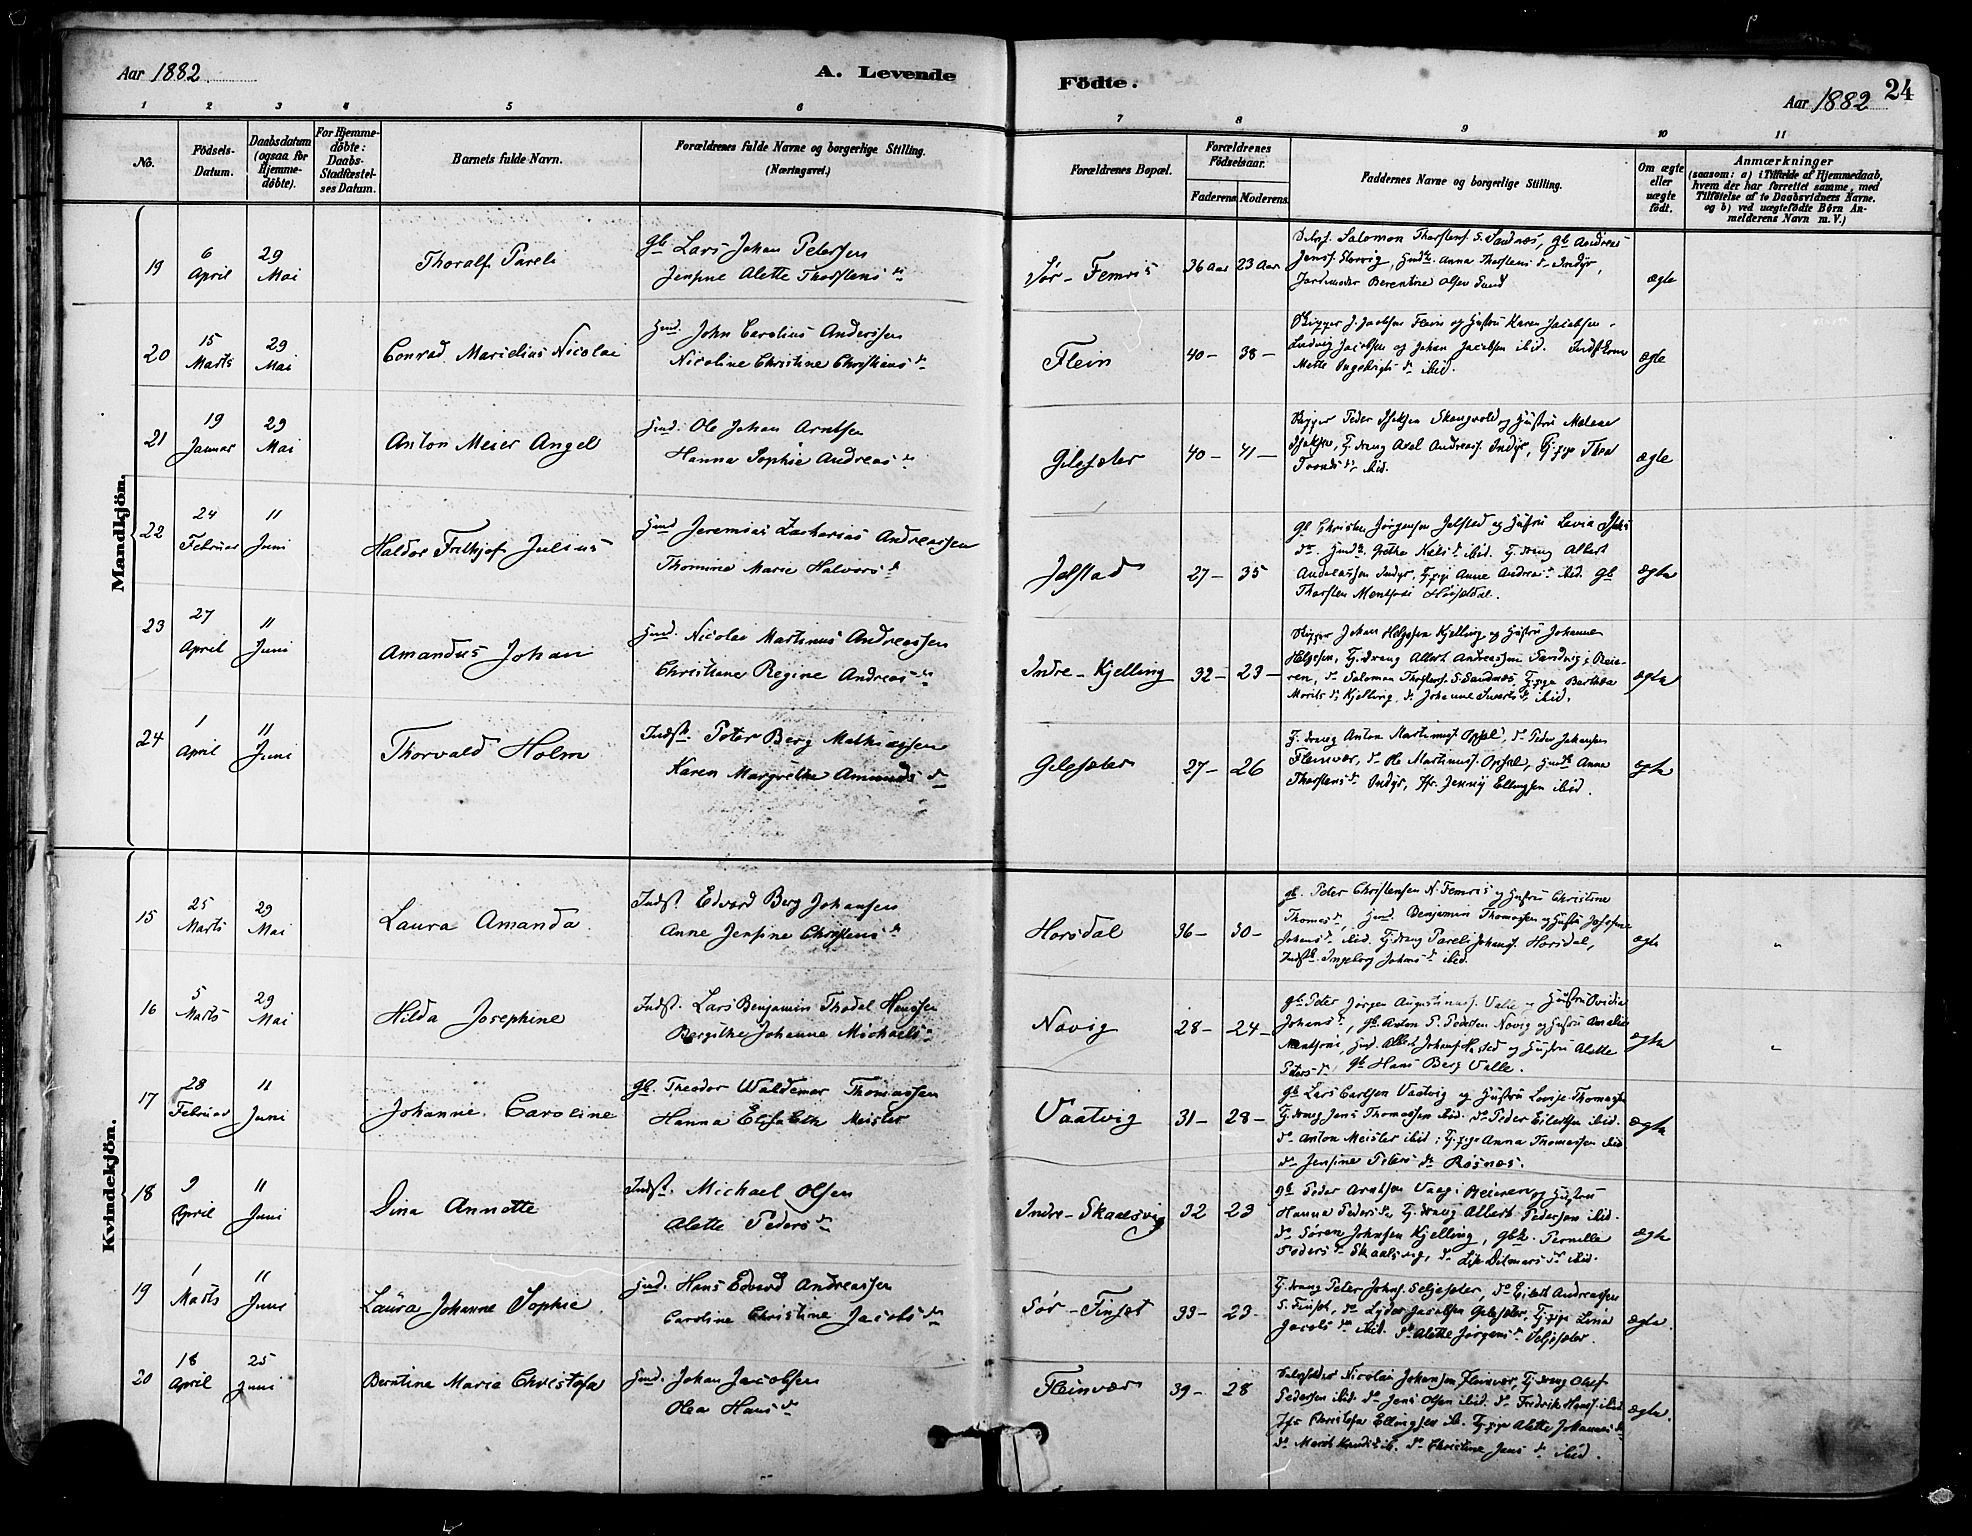 Aar 1882
A. Levende
Födte.
Aar 1882
24
1 2 3 4 5 6 7 8 9 10 11
No.
Födsels-
Datum.
Daabsdatum
(ogsaa for
Hjemme-
döbte).
For Hjemme-
döbte:
Daabs-
Stadfæstel-
ses Datum.
Barnets fulde Navn.
Forældrenes fulde Navne og borgerlige Stilling.
(Næringsvei.)
Forældrenes Bopæl.
Forældrenes
Födselsaar.
Faderens
Moderens
Faddernes Navne og borgerlige Stilling.
Om ægte
eller
uægte
födt.
Anmærkninger
(saasom: a) i Tilfælde af Hjemmedaab,
hvem der har forrettet samme, med
Tilföielse af to Daabsvidners Navne.
og b) ved uægtefödte Börn An-
melderens Navn m. V.)
Mandkjön.
19
6
April
29
Mai
Thoralf Pareli
gb Lars Johan Petersen
Jensine Alette Thorstens dr
Sør-Femris
36 Aar
23 Aar
Salomon Thorstens. S. Sandnæs, gb Andreas
Anna Thorstens dr Indyr,
Jordmoder Berentine Olsen Sund
ægte
20
15
Marts
29
Mai
Conrad Marselius Nicolai
Hmd. John Carolius Anderssen
Nicoline Christine Christians dr
Flein
40 -
38 -
Skipper J. Jacobsen Flein og Hustru Karen Jacobsen.
Ludvig Jacobsen og Johan Jacobsen ibid.
Mette Ingebrigts dr ibid.
ægte
21
19
Januar
29
Mai
Anton Meier Angel
Hmd. Ole Johan Arntsen
Hanna Sophie Andreas dr
Gilesæter
40 -
41 -
Skipper Peder og Hustru
Tj. dreng Axel Andreass. Indyr, Tj. pige Thea
ibid.
ægte
22
24
Februar
11
Juni
Haldor Frithjof Julius
Hmd Jeremias Zacharias Andreassen
Thomine Marie Halvors dr
Jelstad
27 -
35
gb Christen Jørgensen Jelstad og Hustru
Grethe Nels dr ibid. Tj. dreng Albert
Indyr, Tj. pige Anne Andreas dr ibid. gb
Thorsten
ægte
23
27
April
11
Juni
Amandus Johan
Hmd. Nicolai Martinus Andreassen
Christiane Regine Andreas dr
Indre-Kjelling
32 -
23 -
Skipper Johan Helgesen Kjelling og Hustru Johanne
Helgesen, Tj. dreng Albert Andreassen Sandvig i Beie-
ren, do Salomon Thorstens. S. Sandnæs, Tj. pige Berthea
Morits dr Kjelling, do Johanne ibid.
ægte
24
1
April
11
Juni
Thorvald Holm
Indst. Peter Berg Mathiassen
Karen Margrethe Amunds dr
Gilesæter
27 -
26
Tj. dreng Anton Martinus. Opsal, do Peder Johansen
Fleinvær, do Ole Martinuss. Opsal, Anna
Thorstens dr Indyr, Jfr. Jenny Ellingsen ibid.
ægte
Kvindekjön.
15
25
Marts
29
Mai
Laura Amanda
Indst. Edvard Berg Johansen
Anne Jensine Christens dr
Horsdal
36 -
30 -
gb. Peter Christensen N. Femris og Hustru Christine
Thomas dr, Hmd. Benjamin Thomassen og Hustru
Johans dr ibid. Tj. dreng Pareli Johans. Horsdal,
Ingeborg Johns dr ibid.
ægte
"
16
5
Marts
29
Mai
Hilda Josephine
Indst. Lars Benjamin Thodal Hanssen
Bergithe Johanne Michaels dr
Novig
28 -
24 -
gb Peter Jørgen Augustinuss. Valle og Hustru Ovidia
Johans dr, gb. Anton P. Pedersen Novig og Hustru Amalie
Hmd. Albert Johans. og Hustru Alette
Peters dr gb Hans Berg Valle.
ægte
"
17
28
Februar
11
Juni
Johanne Caroline
gb. Theodor Waldemar Thomassen
Hanna Elisabeth Meisler
Vaatvig
31 -
28 -
gb Lars Carlsen Vaatvig og Hustru Lovise Thomas dr
Tj. dreng Jens Thomassen ibid. do Peder Eilertsen ibid.
do Anton Meisler ibid; Tj. pige Anna Thomassen ibid
do Jensine Peters dr Røsnæs.
ægte
18
9
April
11
Juni
Dina Annette
Indst. Michael Olsen
Alette Peders dr
Indre-Skaalsvig
32
23
gb Peder Arntsen Vaag i Beieren og Hustru
Hanna Peders dr Tj. dreng Albert Pedersen ibid.
do Søren Johnsen Kjelling, gbk. Pernille
Peders dr Skaalsvig, do Ditmars dr ibid.
ægte
19
1
Marts
11
Juni
Laura Johanne Sophie
Hmd. Hans Edvard Andreassen
Caroline Christine Jacobs dr
Sør-Finset
33 -
23 -
Tj. dreng Peter Johns. Seljesæter, do Eilert Andreassen
S. Finset, do Lyder Jacobsen Gilesæter, Tj. pige Lina
Jacobs dr ibid. do Alette Jørgens dr Seljesæter.
ægte
20
18
April
25
Juni
Berntine Maria Christofa
Hmd. Johan Jacobsen
Olea Hans dr
Fleinvær
39 -
28
Nicolai Johansen Fleinvær, Tj. dreng Olaf
Pedersen ibid. do Jens Olsen ibid. do Fredrik Hanss. ibid
Jfr Christofa Ellingsen ib. Tj. pige Alette Johannes dr
do Marit ib. do Christine Jens dr ibid.
ægte.